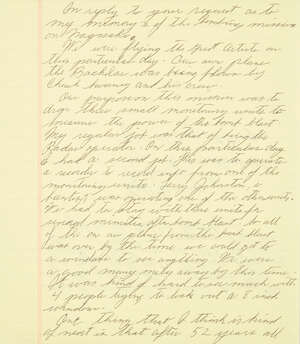 In reply to your request as to
my memory's of the Bombing mission
on Nagasaki.
We were flying the Great Artiste on
this particular day. Our own plane
the Bockscar was being flown by
Chuck Sweeny and his crew.
Our purpose on this mission was to
drop three small monitoring units to
measure the power of the bomb blast
My regular job was that of being the
Radar operator. On this particular day
I had a second job. This was to operate
a recorder to record info from one of the
monitoring units. Larry Johnston, a
was operating one of the other units.
We had to stay with these units for
several minutes after bomb blast. So all
of us on our plane the
was over by the time we could get to
a window to see anything. We were
a good many miles away by this time.
It was kind of hard to see much with
4 people trying to look out a 8 inch
window.
One thing that I think is kind
of neat is that after 52 years all